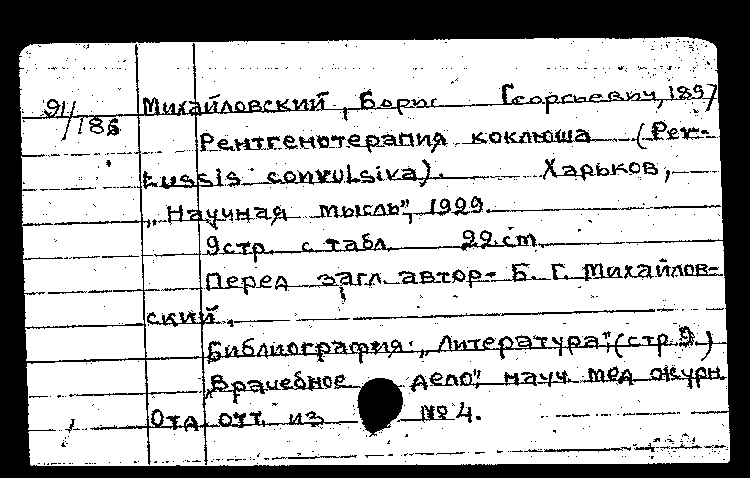 91/186 Михайловский, Борис Георгьевич, 1897
Рентгенотерапия коклюша (Per-
tussis convulsiva). Харьков,
„Научная мысль", 1929.
9 стр. с табл. 22 cm.
Перед загл. автор- Б. Г. Михайлов-
ский.
Библиография: „Литература", (стр. 9.)
„Врачебное дело", науч. мед журн.
Отд отт. из № 4.